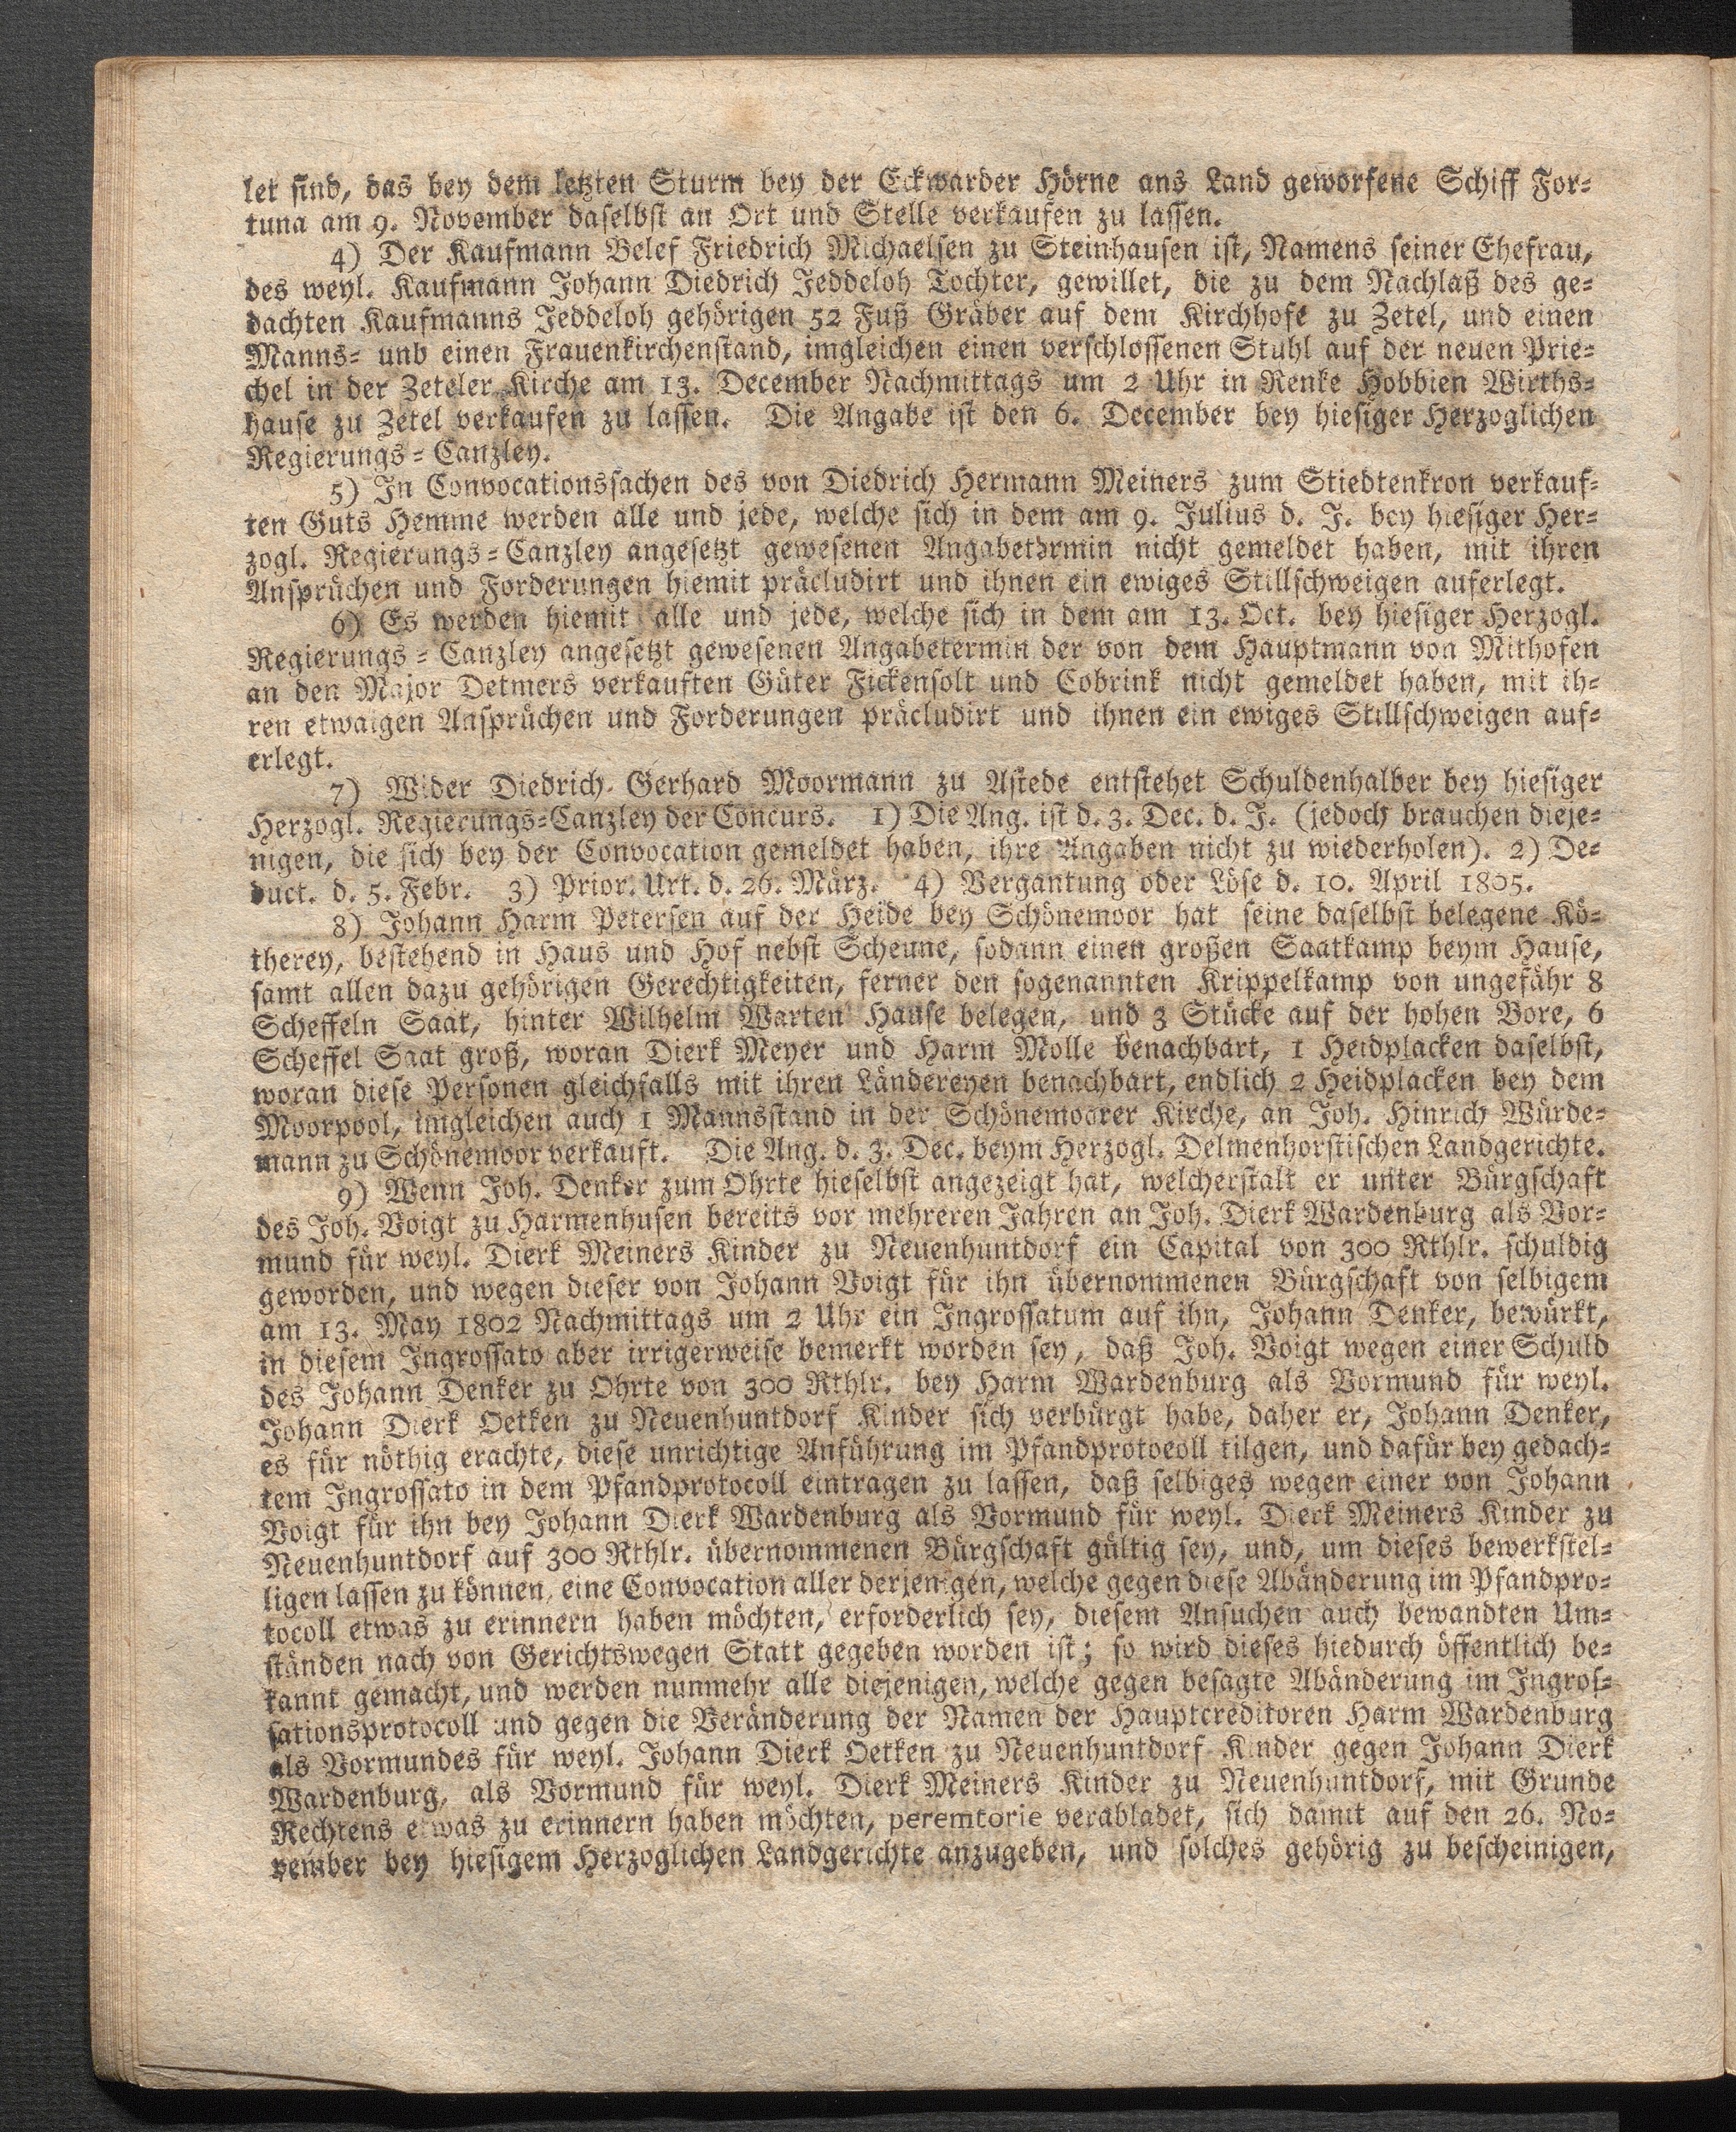 let sind, das bey dem letzten Sturm bey der Eckwarder Hörne ans Land geworfene Schiff For-
tuna am 9. November daselbst an Ort und Stelle verkaufen zu lassen.
4) Der Kaufmann Belef Friedrich Michaelsen zu Steinhausen ist, Namens seiner Ehefrau,
des weyl. Kaufmann Johann Diedrich Jeddeloh Tochter, gewillet, die zu dem Nachlaß des ge-
dachten Kaufmanns Jeddeloh gehörigen 52 Fuß Gräber auf dem Kirchhofe zu Zetel, und einen
Manns- und einen Frauenkirchenstand, imgleichen einen verschlossenen Stuhl auf der neuen Prie-
chel in der Zeteler Kirche am 13. December Nachmittags um 2 Uhr in Renke Hobbien Wirths-
hause zu Zetel verkaufen zu lassen. Die Angabe ist den 6. December bey hiesiger Herzoglichen
Regierungs-Canzley.
5) In Convocationssachen des von Diedrich Hermann Meiners zum Stiedtenkron verkauf-
ten Guts Hemme werden alle und jede, welche sich in dem am 9. Julius d. J. bey hiesiger Her-
zogl. Regierungs-Canzley angesetzt gewesenen Angabetermin nicht gemeldet haben, mit ihren
Ansprüchen und Forderungen hiemit präcludirt und ihnen ein ewiges Stillschweigen auferlegt.
6) Es werden hiemit alle und jede, welche sich in dem am 13. Oct. bey hiesiger Herzogl.
Regierungs-Canzley angesetzt gewesenen Angabetermin der von dem Hauptmann von Mithofen
an den Major Detmers verkauften Güter Fickensolt und Cobrink nicht gemeldet haben, mit ih-
ren etwaigen Ansprüchen und Forderungen präcludirt und ihnen ein ewiges Stillschweigen auf-
erlegt.
7) Wider Diedrich Gerhard Moormann zu Astede entstehet Schuldenhalber bey hiesiger
Herzogl. Regierungs-Canzley der Concurs. 1) Die Ang. ist d. 3. Dec. d. J. (jedoch brauchen dieje-
nigen, die sich bey der Convocation gemeldet haben, ihre Angaben nicht zu wiederholen). 2) De-
duct. d. 5. Febr. 3) Prior. Urt. d. 26. März. 4) Vergantung oder Löse d. 10. April 1805.
8) Johann Harm Petersen auf der Heide bey Schönemoor hat seine daselbst belegene Kö-
therey, bestehend in Haus und Hof nebst Scheune, sodann einen großen Saatkamp beym Hause,
samt allen dazu gehörigen Gerechtigkeiten, ferner den sogenannten Krippelkamp von ungefähr 8
Scheffeln Saat, hinter Wilhelm Warten Hause belegen, und 3 Stücke auf der hohen Bore, 6
Scheffel Saat groß, woran Dierk Meyer und Harm Molle benachbart, 1 Heidplacken daselbst,
woran diese Personen gleichfalls mit ihren Ländereyen benachbart, endlich 2 Heidplacken bey dem
Moorpool, imgleichen auch 1 Mannsstand in der Schönemoorer Kirche, an Joh. Hinrich Würde-
mann zu Schönemoor verkauft. Die Ang. d. 3. Dec. beym Herzogl. Delmenhorstischen Landgerichte.
9) Wenn Joh. Denker zum Ohrte hieselbst angezeigt hat, welcherstalt er unter Bürgschaft
des Joh. Voigt zu Harmenhusen bereits vor mehreren Jahren an Joh. Dierk Wardenburg als Vor-
mund für weyl. Dierk Meiners Kinder zu Neuenhuntdorf ein Capital von 300 Rthlr. schuldig
geworden, und wegen dieser von Johann Voigt für ihn übernommenen Bürgschaft von selbigem
am 13. May 1802 Nachmittags um 2 Uhr ein Ingrossatum auf ihn, Johann Denker, bewürkt,
in diesem Ingrossato aber irrigerweise bemerkt worden sey, daß Joh. Voigt wegen einer Schuld
des Johann Denker zu Ohrte von 300 Rthlr. bey Harm Wardenburg als Vormund für weyl.
Johann Dierk Oetken zu Neuenhuntdorf Kinder sich verbürgt habe, daher er, Johann Denker,
es für nöthig erachte, diese unrichtige Anführung im Pfandprotocoll tilgen, und dafür bey gedach-
tem Ingrossato in dem Pfandprotocoll eintragen zu lassen, daß selbiges wegen einer von Johann
Voigt für ihn bey Johann Dierk Wardenburg als Vormund für weyl. Dierk Meiners Kinder zu
Neuenhuntdorf auf 300 Rthlr. übernommenen Bürgschaft gültig sey, und, um dieses bewerkstel-
ligen lassen zu können, eine Convocation aller derjenigen, welche gegen diese Abänderung im Pfandpro-
tocoll etwas zu erinnern haben möchten, erforderlich sey, diesem Ansuchen auch bewandten Um-
ständen nach von Gerichtswegen Statt gegeben worden ist; so wird dieses hiedurch öffentlich be-
kannt gemacht, und werden nunmehr alle diejenigen, welche gegen besagte Abänderung im Ingros-
sationsprotocoll und gegen die Veränderung der Namen der Hauptcreditoren Harm Wardenburg
als Vormundes für weyl. Johann Dierk Oetken zu Neuenhuntdorf Kinder gegen Johann Dierk
Wardenburg, als Vormund für weyl. Dierk Meiners Kinder zu Neuenhuntdorf, mit Grunde
Rechtens etwas zu erinnern haben möchten, peremtorie verabladet, sich damit auf den 26. No-
vember bey hiesigem Herzoglichen Landgerichte anzugeben, und solches gehörig zu bescheinigen,